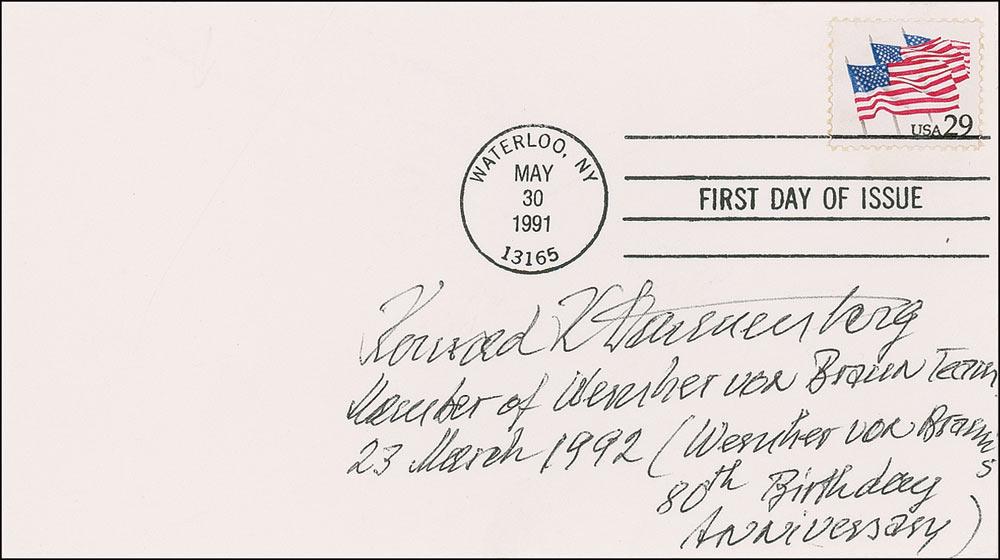 USA 29
WATERLOO, NY
MAY
30
1991
13165
FIRST DAY OF ISSUE
Konrad K Dannenberg
Member of Wernher von Braun Team
23 March 1992 (Wernher von Braun's
80th Birthday
Anniversary)